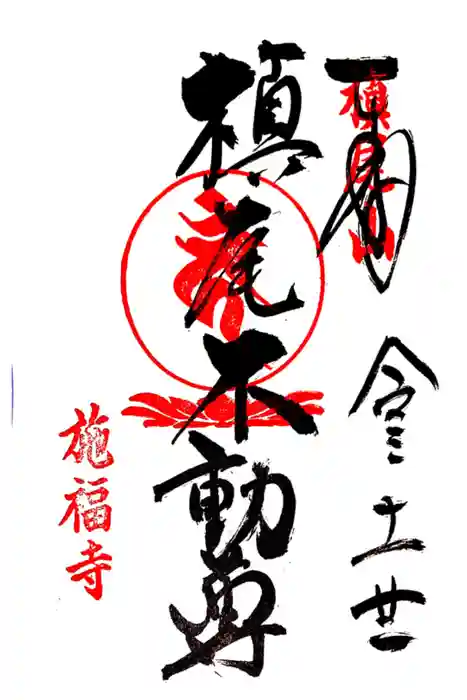 槇尾山
令三
十一
廿一
槇尾不動尊
施福寺